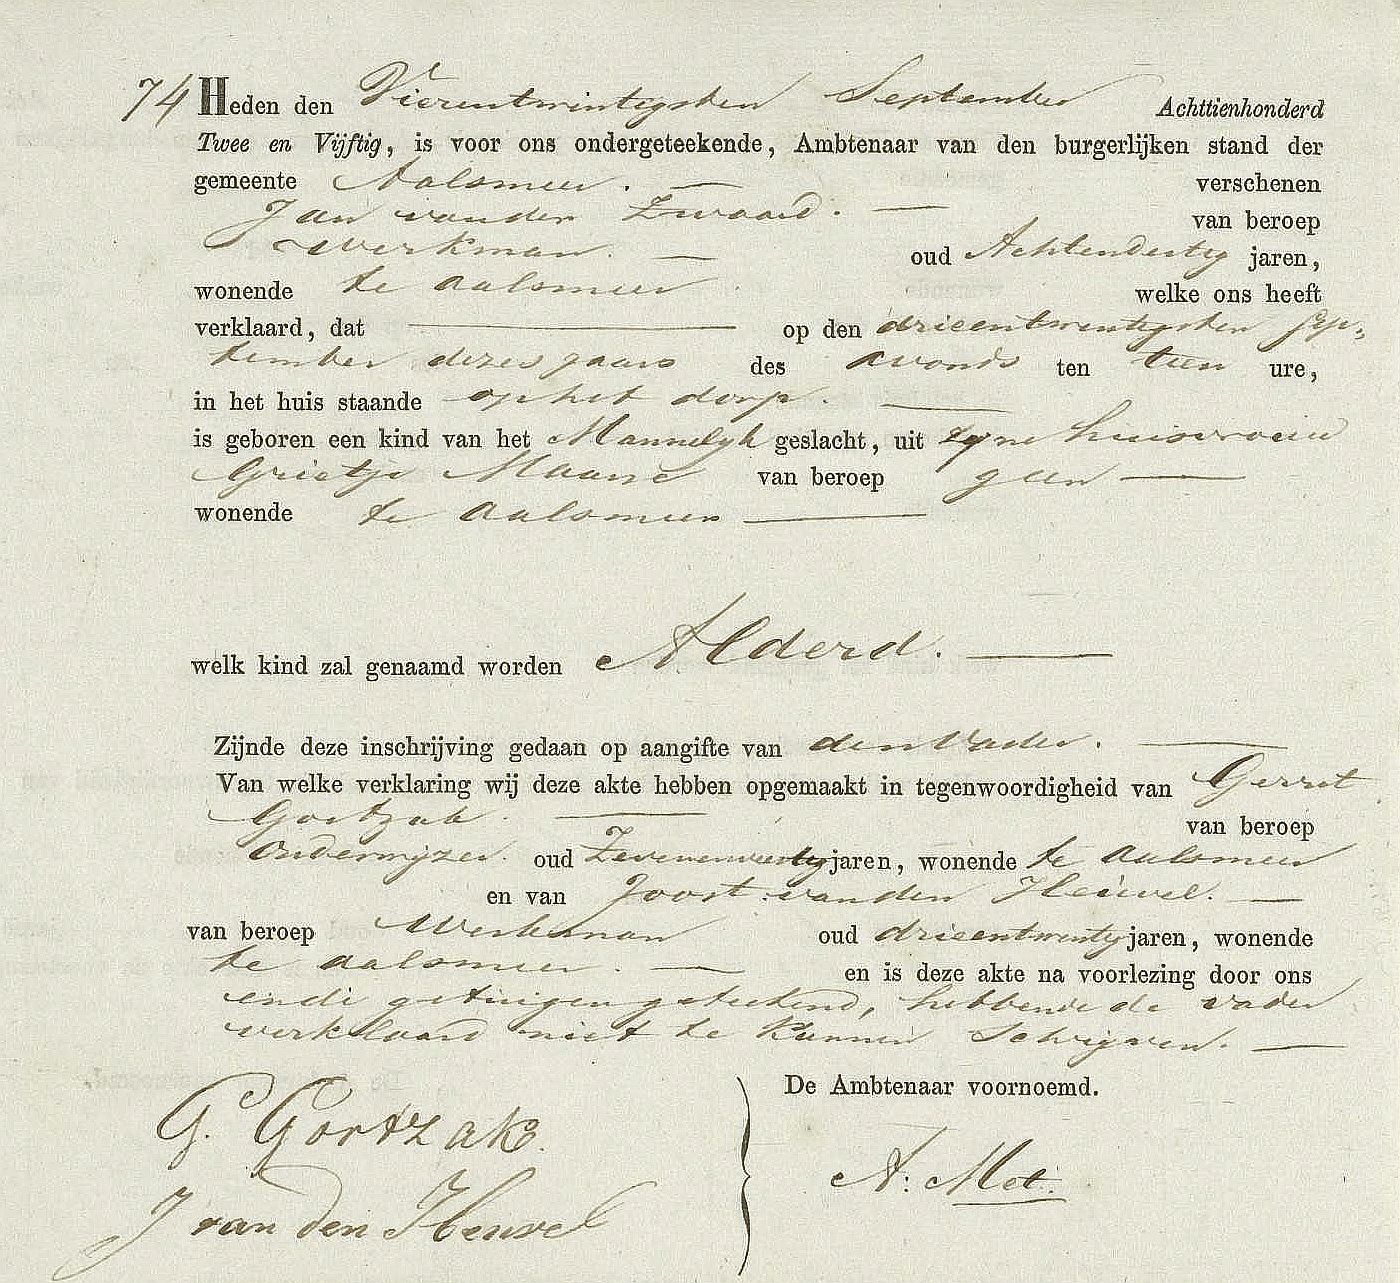 74 Heden den Vierentwintigsten September Achttienhonderd
Twee en Vijftig, is voor ons ondergeteekende, Ambtenaar van den burgerlijken stand der
gemeente Aalsmeer. — verschenen
Jan vander Zwaard. — van beroep
werkman. — oud Achtendertig jaren,
wonende te Aalsmeer welke ons heeft
verklaard, dat — op den drieentwintigsten Sep-
tember dezes jaars des avonds ten tien ure,
in het huis staande op het dorp. —
is geboren een kind van het Mannelyk geslacht, uit zyne huisvrouw
Grietje Maarse van beroep geen —
wonende te Aalsmeer —
welk kind zal genaamd worden Alderd. —
Zijnde deze inschrijving gedaan op aangifte van den Vader. —
Van welke verklaring wij deze akte hebben opgemaakt in tegenwoordigheid van Gerrit
Gortzak. — van beroep
Onderwyzer. oud Zevenenveertig jaren, wonende te Aalsmeer
en van Joost vanden Heuvel. —
van beroep Werkman oud drieentwintig jaren, wonende
te Aalsmeer. — en is deze akte na voorlezing door ons
en de getuigen geteekend, hebbende de vader
verklaard niet te kunnen Schryven. —
De Ambtenaar voornoemd.
G. Gortzak.
A: Mot.
J van den Heuvel